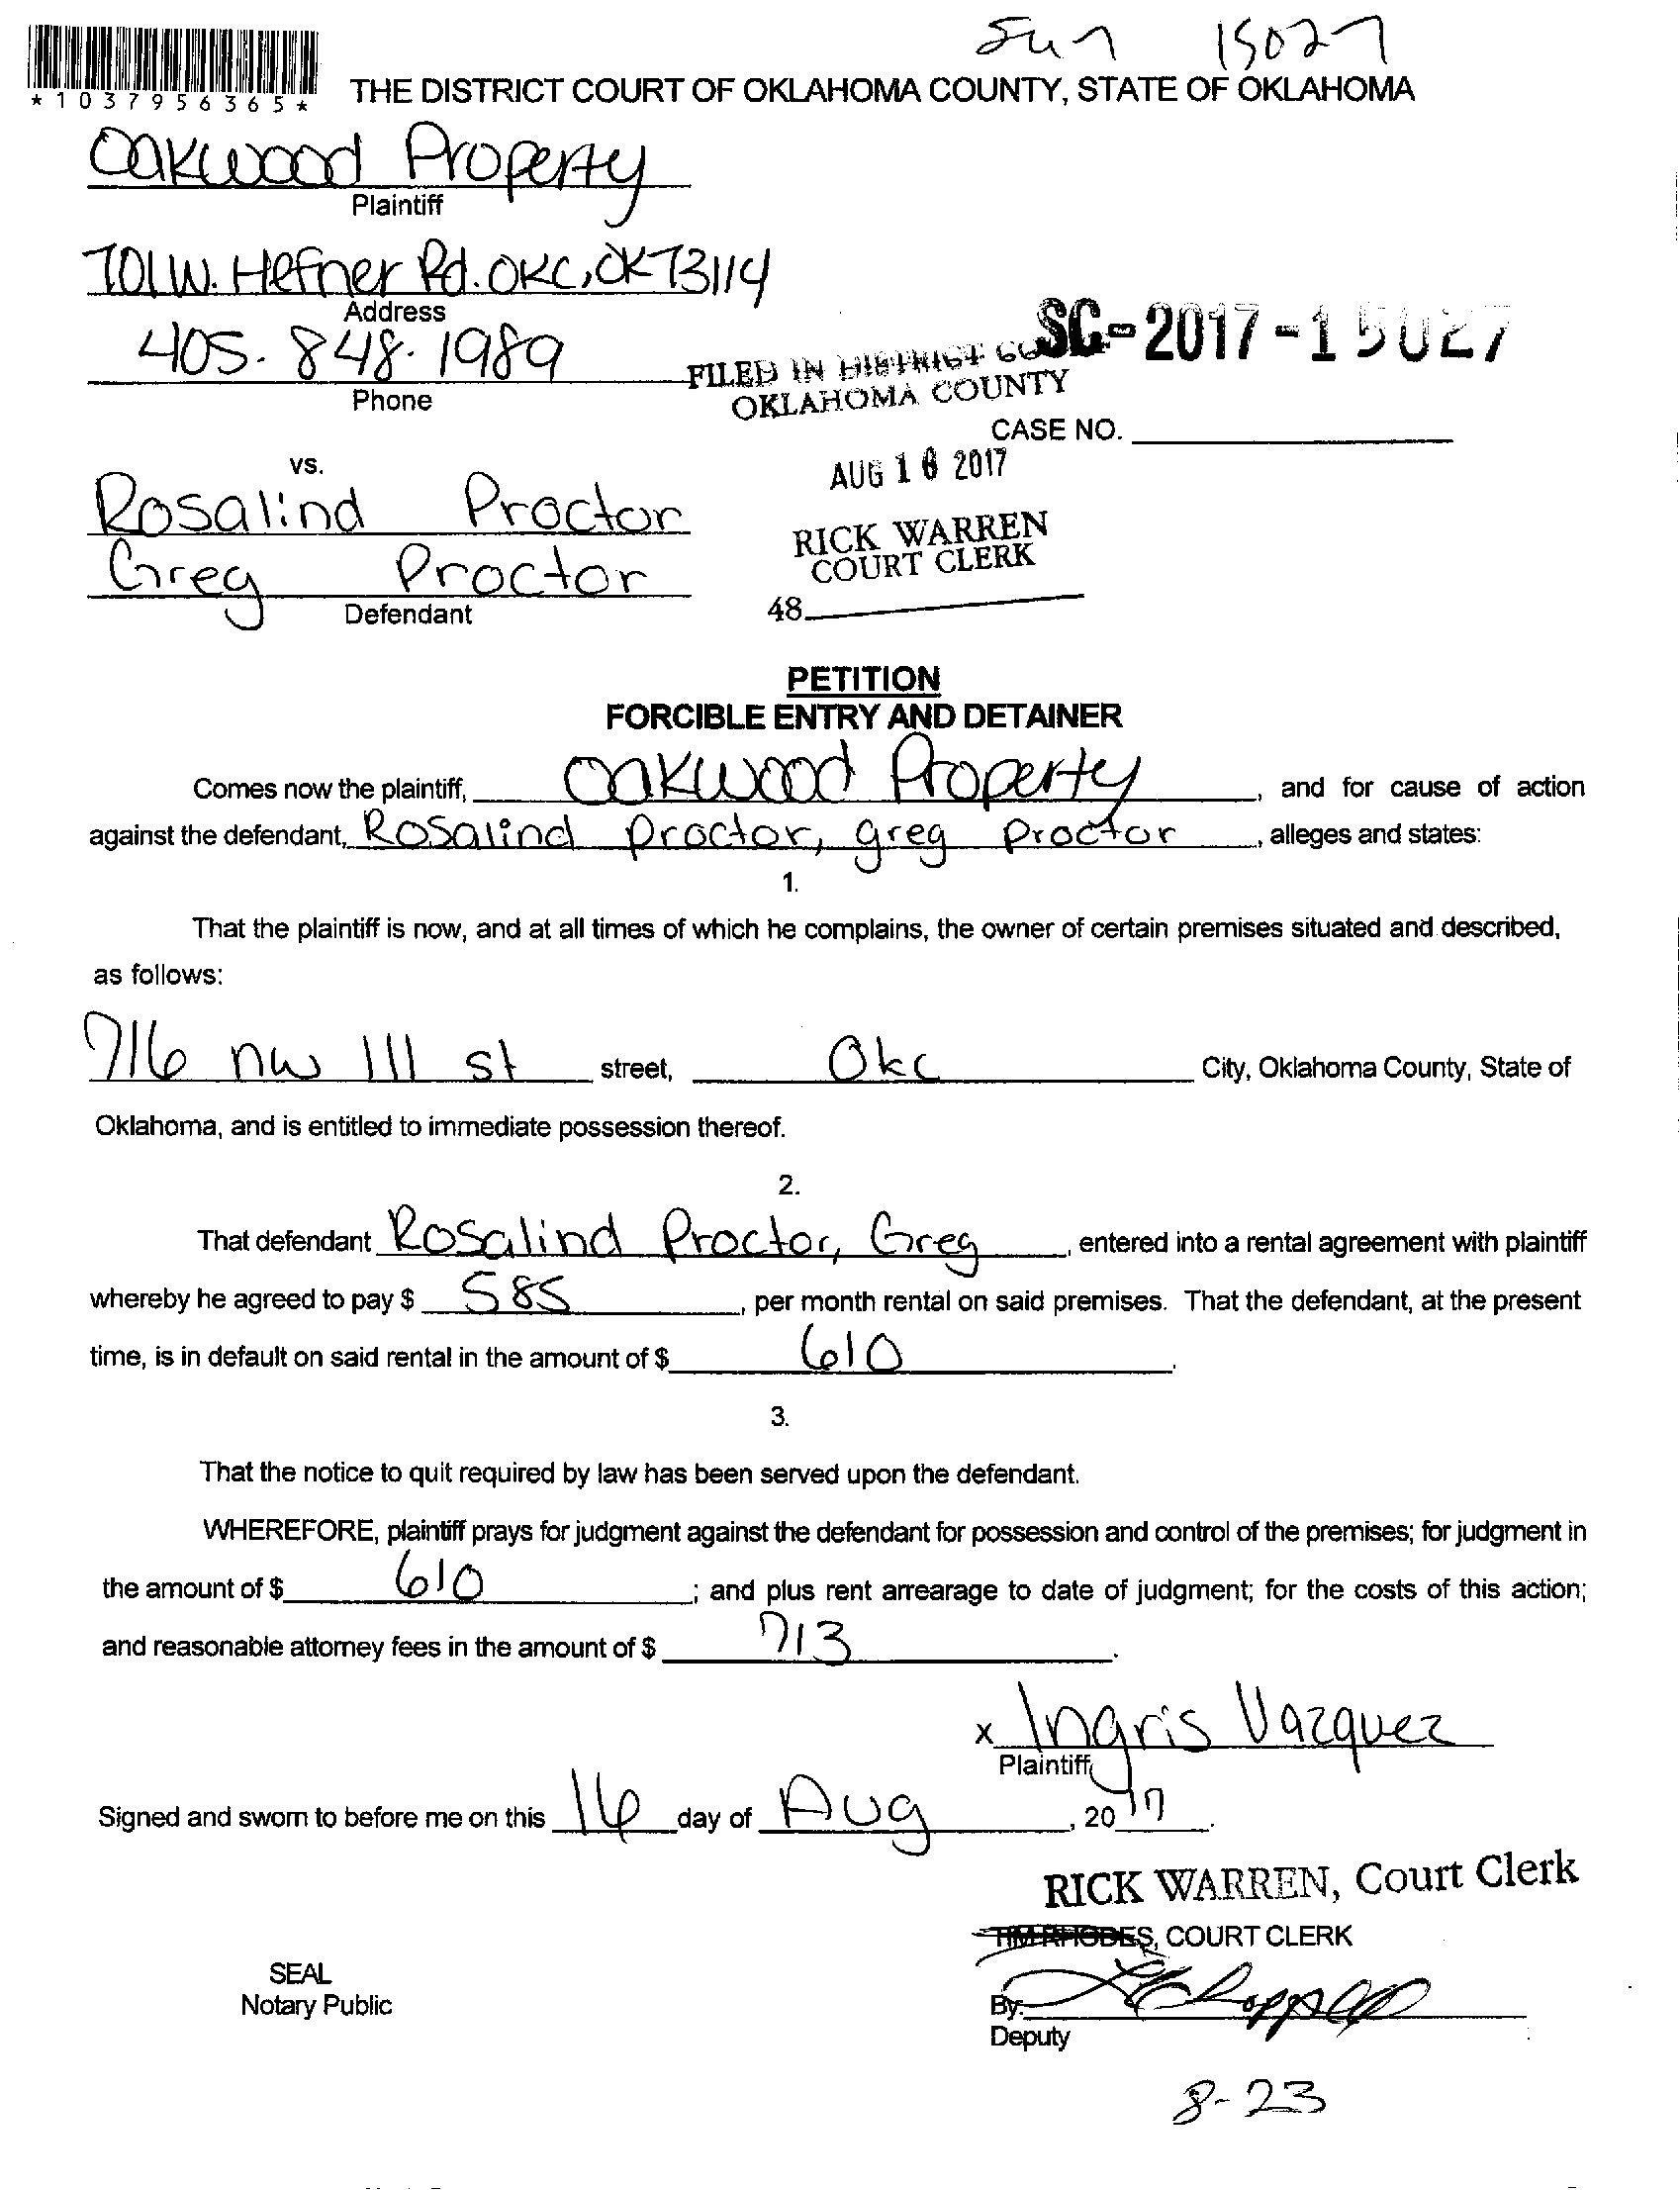 15027
*1037956365*
THE DISTRICT COURT OF OKLAHOMA COUNTY, STATE OF OKLAHOMA
Oakwood Property
Plaintiff
701 W. Hefner Rd. OKC, OK 73114
Address
405. 848. 1989
Phone
SC-2017-15027
FILED IN DISTRICT
OKLAHOMA COUNTY
CASE NO.
AUG 16 2017
vs.
Rosalind Proctor
Greg Proctor
Defendant
RICK WARREN
COURT CLERK
48
PETITION
FORCIBLE ENTRY AND DETAINER
Comes now the plaintiff, Oakwood Property, and for cause of action
against the defendant, Rosalind Proctor, greg Proctor, alleges and states:
1.
That the plaintiff is now, and at all times of which he complains, the owner of certain premises situated and described,
as follows:
716 nw 111 st street, Okc City, Oklahoma County, State of
Oklahoma, and is entitled to immediate possession thereof.
2.
That defendant Rosalind Proctor, Greg, entered into a rental agreement with plaintiff
whereby he agreed to pay $ 585, per month rental on said premises. That the defendant, at the present
time, is in default on said rental in the amount of $ 610.
3.
That the notice to quit required by law has been served upon the defendant.
WHEREFORE, plaintiff prays for judgment against the defendant for possession and control of the premises; for judgment in
the amount of $ 610; and plus rent arrearage to date of judgment; for the costs of this action;
and reasonable attorney fees in the amount of $ 713.
x Ingris Vazquez
Plaintiff
Signed and sworn to before me on this 16 day of Aug, 2017.
RICK WARREN, Court Clerk
TIM RHODES, COURT CLERK
SEAL
Notary Public
By:
Deputy
8-23